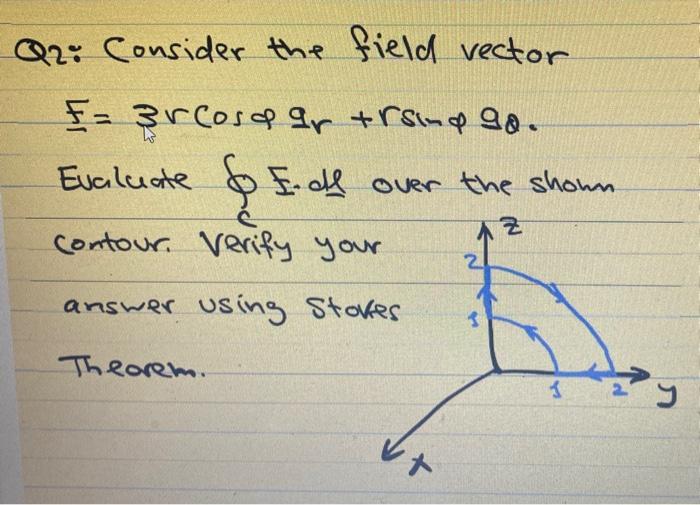 Q2: Consider the field vector
F = 3r cosφ ar + r sinφ aθ.
Evaluate ∮ F. dl over the shown
C
contour. Verify your
answer using Stokes
Theorem.
z
2
1
1
2
y
x